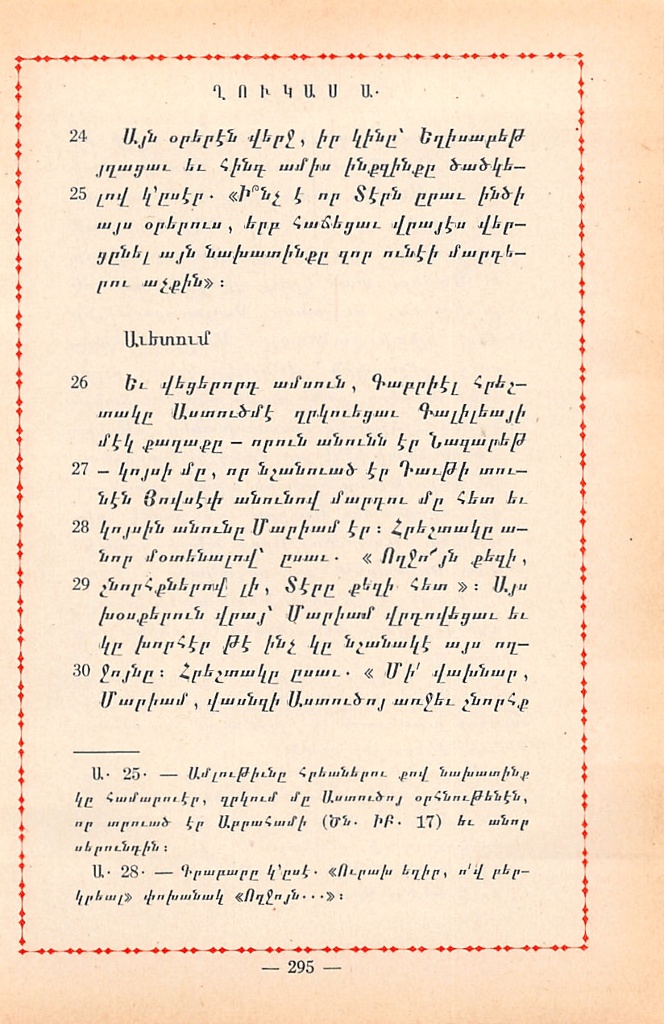 ՂՈՒԿԱՍ Ա.
24 Այն օրերէն վերջ, իր կինը՝ Եղիսաբեթ
յղացաւ եւ հինգ ամիս ինքզինքը ծածկե–
25 լով կ՚ըսէր. «Ի՞նչ է որ Տէրն ըրաւ ինծի
այս օրերուս, երբ հաճեցաւ վրայէս վեր–
ցընել այն նախատինքը զոր ունէի մարդե–
րու աչքին»։
Աւետում
26 Եւ վեցերորդ ամսուն, Գաբրիէլ հրեշ–
տակը Աստուծմէ ղրկուեցաւ Գալիլեայի
մէկ քաղաքը – որուն անունն էր Նազարեթ
27 – կոյսի մը, որ նշանուած էր Դաւթի տու–
նէն Յովսէփ անունով մարդու մը հետ եւ
28 կոյսին անունը Մարիամ էր։ Հրեշտակը ա–
նոր մօտենալով՝ ըսաւ. « Ողջո՜յն քեզի,
29 շնորհքներով լի, Տէրը քեզի հետ »։ Այս
խօսքերուն վրայ՝ Մարիամ վրդովեցաւ եւ
կը խորհէր թէ ինչ կը նշանակէ այս ող–
30 ջոյնը։ Հրեշտակը ըսաւ. « Մի՛ վախնար,
Մարիամ, վասնզի Աստուծոյ առջեւ շնորհք
Ա. 25. — Ամլութիւնը հրեաներու քով նախատինք
կը համարուէր, զրկում մը Աստուծոյ օրհնութենէն,
որ տրուած էր Աբրահամի (Ծն. ԻԲ. 17) եւ անոր
սերունդին։
Ա. 28. — Գրաբարը կ՚ըսէ. «Ուրախ եղիր, ո՛վ բեր–
կրեալ» փոխանակ «Ողջոյն...»։
— 295 —